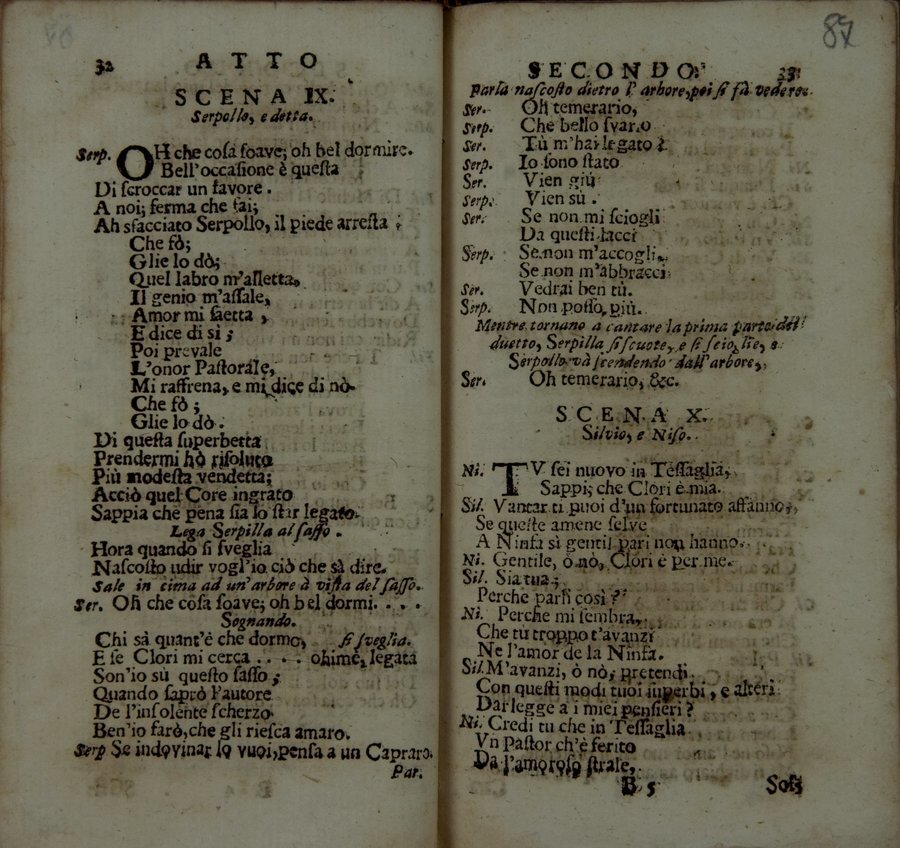 32
ATTO
SCENA IX.
Serpollo, e detta.
Serp. OH che cosa soave; oh bel dormire.
Bell'occasione è questa
Di scroccar un favore.
A noi; ferma che fai;
Ah sfacciato Serpollo, il piede arresta;
Che fò;
Glie lo dò;
Quel labro m'alletta,
Il genio m'assale,
Amor mi saetta,
E dice di sì;
Poi prevale
L'onor Pastorale,
Mi raffrena, e mi dice di nò
Che fò;
Glie lo dò.
Di questa superbetta
Prendermi hò risoluto
Più modesta vendetta;
Acciò quel Core ingrato
Sappia che pena sia lo star legato.
Lega Serpilla al sasso.
Hora quando si sveglia
Nascosto udir vogl'io ciò che sà dire.
Sale in cima ad un'arbore à vista del sasso.
Ser. Oh che cosa soave; oh bel dormi....
Sognando.
Chi sà quant'è che dormo, si sveglia.
E se Clori mi cerca .... ohimè, legata
Son'io sù questo sasso;
Quando saprò l'autore
De l'insolente scherzo
Ben'io farò, che gli riesca amaro.
Serp Se indovinar lo vuoi, pensa a un Capraro.
Par.
87
SECONDO. 33
Parla nascosto dietro l'arbore, poi si fà vedere.
Ser. Oh temerario,
Serp. Che bello svario
Ser. Tù m'hai legato?
Serp. Io sono stato
Ser. Vien giù
Serp. Vien sù.
Ser. Se non mi sciogli
Da questi lacci
Serp. Se non m'accogli,
Se non m'abbracci
Ser. Vedrai ben tù.
Serp. Non posso più.
Mentre tornano a cantare la prima parte del
duetto, Serpilla si scuote, e si scioglie, e
Serpollo và scendendo dall'arbore,
Ser. Oh temerario, &c.
SCENA X.
Silvio, e Niso.
Ni. TV sei nuovo in Tessaglia,
Sappi; che Clori è mia.
Sil. Vantar ti puoi d'un fortunato affanno,
Se queste amene selve
A Ninfa sì gentil pari non hanno.
Ni. Gentile, ò nò, Clori è per me.
Sil. Sia tua;
Perche parli così?
Ni. Perche mi sembra,
Che tu troppo t'avanzi
Ne l'amor de la Ninfa.
Sil. M'avanzi, ò nò, pretendi
Con questi modi tuoi superbi, e alteri
Dar legge a i miei pensieri?
Ni. Credi tu che in Tessaglia
Vn Pastor ch'è ferito
Da l'amoroso strale,
B 5 Sof